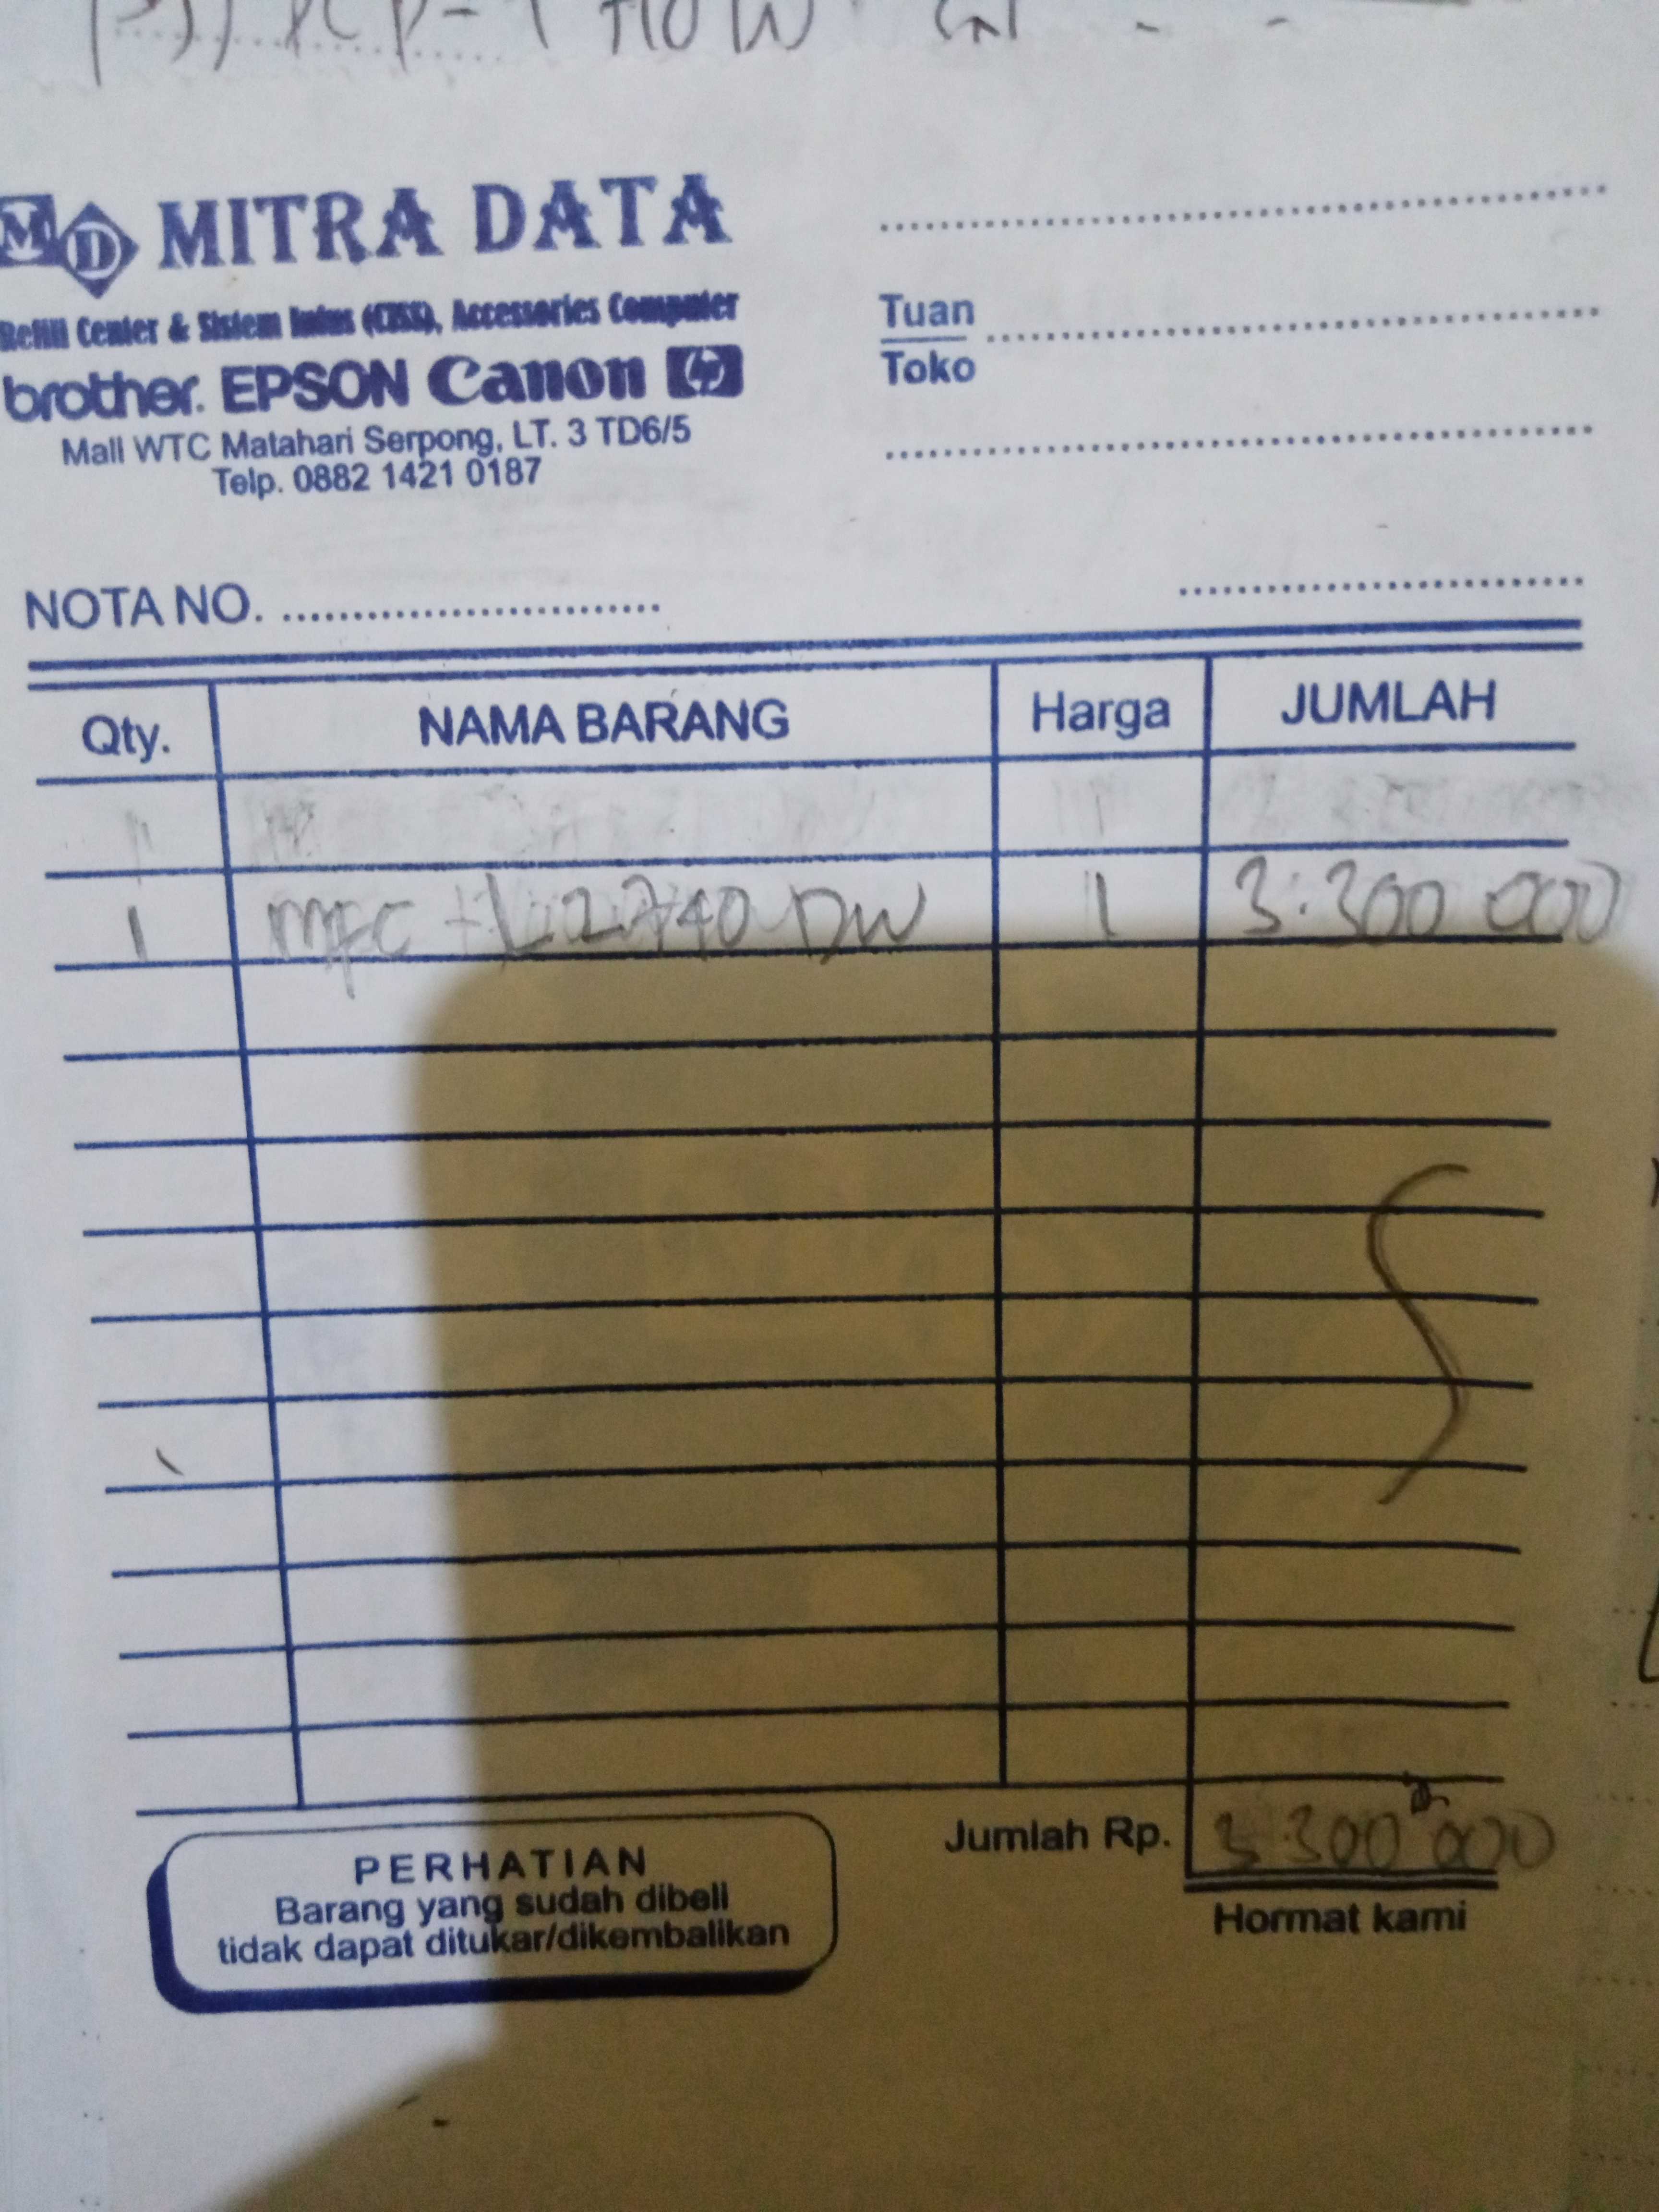 MD MITRA DATA
Refill Center & Sistem Infus (CISS), Accessories Computer
brother. EPSON Canon hp
Mall WTC Matahari Serpong, LT. 3 TD6/5
Telp. 0882 1421 0187
Tuan
Toko
NOTA NO.
Qty. NAMA BARANG Harga JUMLAH
1 MFC - L2740 DW 1 3.300 000
Jumlah Rp. 3.300 000
PERHATIAN
Barang yang sudah dibeli
tidak dapat ditukar/dikembalikan
Hormat kami